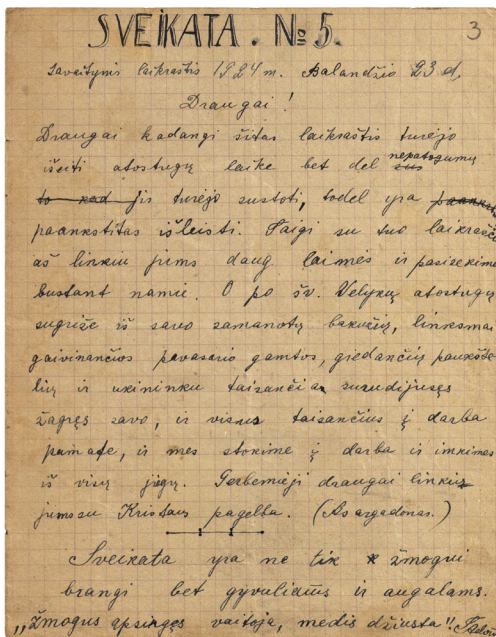 SVEIKATA. № 5. 3
savaitynis laikraštis 1924 m. Balandžio 23 d,
Draugai!
Draugai kadangi šitas laikraštis turėjo
išeiti atostugų laike bet del nepatogumų
to kad jis turėjo sustoti, todel yra
paankstitas išleisti. Taigi su tuo laikraščiu
aš linkiu jums daug laimės ir pasisekimo
bustant namie. O po šv. Velykų atostugų
sugriže iš savo samanotų bakužių, linksmai
gaivinančios pavasario gamtos, giedančių paukšte-
lių ir ukininku taisančia surudijuses
žagręs savo, ir visus taisančius į darba
pamatę, ir mes stokime į darba ir imkimes
iš visų jėgų. Gerbemieji draugai linkiu
jums su Kristaus pagelba. (As argadonas.)
Sveikata yra ne tik žmogui
brangi bet gyvuliams ir augalams.
„Žmogus apsirgęs vaitoja, medis džiusta".